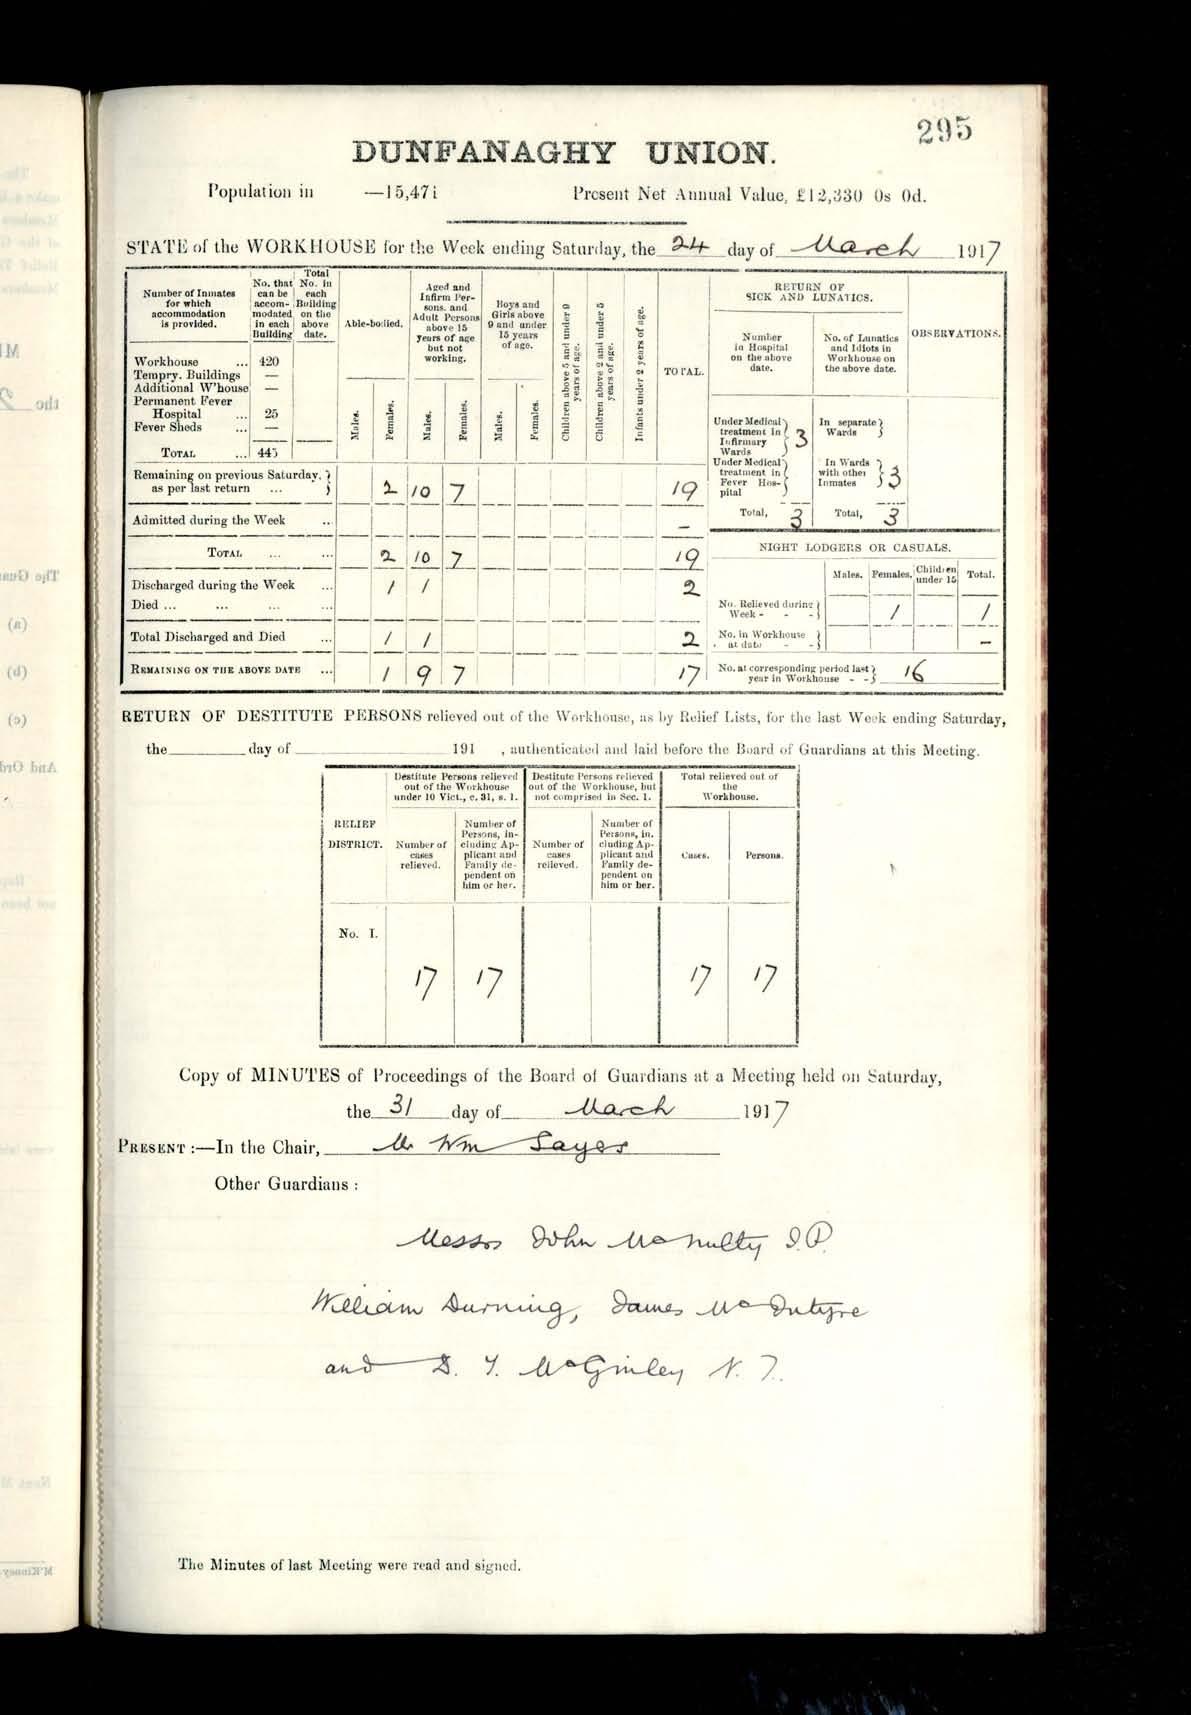 295
DUNFANAGHY UNION.
Population in —15,471 Present Net Annual Value, £12,330 0s 0d.
STATE of the WORKHOUSE for the Week ending Saturday, the 24 day of March 1917
Number of Inmates for which accommodation is provided.
No. that can be accommodated in each Building
Total No. in each Building on the above date.
Able-bodied.
Aged and Infirm Persons, and Adult Persons above 15 years of age but not working.
Boys and Girls above 9 and under 15 years of age.
Children above 5 and under 9 years of age.
Children above 2 and under 5 years of age.
Infants under 2 years of age.
TOTAL.
RETURN OF SICK AND LUNATICS.
Number in Hospital on the above date.
No. of Lunatics and Idiots in Workhouse on the above date.
OBSERVATIONS.
Males. Females. Males. Females. Males. Females.
Workhouse ... 420
Tempry. Buildings —
Additional W'house —
Permanent Fever
Hospital ... 25
Fever Sheds ... —
TOTAL ... 445
Remaining on previous Saturday, as per last return ... 2 10 7 19
Admitted during the Week ... –
TOTAL ... ... 2 10 7 19
Discharged during the Week ... 1 1 2
Died ... ... ... ...
Total Discharged and Died ... 1 1 2
REMAINING ON THE ABOVE DATE ... 1 9 7 17
Under Medical treatment in Infirmary Wards 3
In separate Wards
Under Medical treatment in Fever Hospital
In Wards with other Inmates 3
Total, 3 Total, 3
NIGHT LODGERS OR CASUALS.
Males. Females. Children under 15 Total.
No. Relieved during Week - - - 1 1
No. in Workhouse at date - - –
No. at corresponding period last year in Workhouse - - 16
RETURN OF DESTITUTE PERSONS relieved out of the Workhouse, as by Relief Lists, for the last Week ending Saturday,
the day of 191 , authenticated and laid before the Board of Guardians at this Meeting.
RELIEF DISTRICT.
Destitute Persons relieved out of the Workhouse under 10 Vict., c. 31, s. 1.
Destitute Persons relieved out of the Workhouse, but not comprised in Sec. 1.
Total relieved out of the Workhouse.
Number of cases relieved.
Number of Persons, including Applicant and Family dependent on him or her.
Number of cases relieved.
Number of Persons, including Applicant and Family dependent on him or her.
Cases. Persons.
No. I. 17 17 17 17
Copy of MINUTES of Proceedings of the Board of Guardians at a Meeting held on Saturday,
the 31 day of March 1917
PRESENT :—In the Chair, Mr Wm Sayers
Other Guardians :
Messrs John McNulty J.P.
William Durning, James McIntyre
and D. T. McGinley N. T.
The Minutes of last Meeting were read and signed.